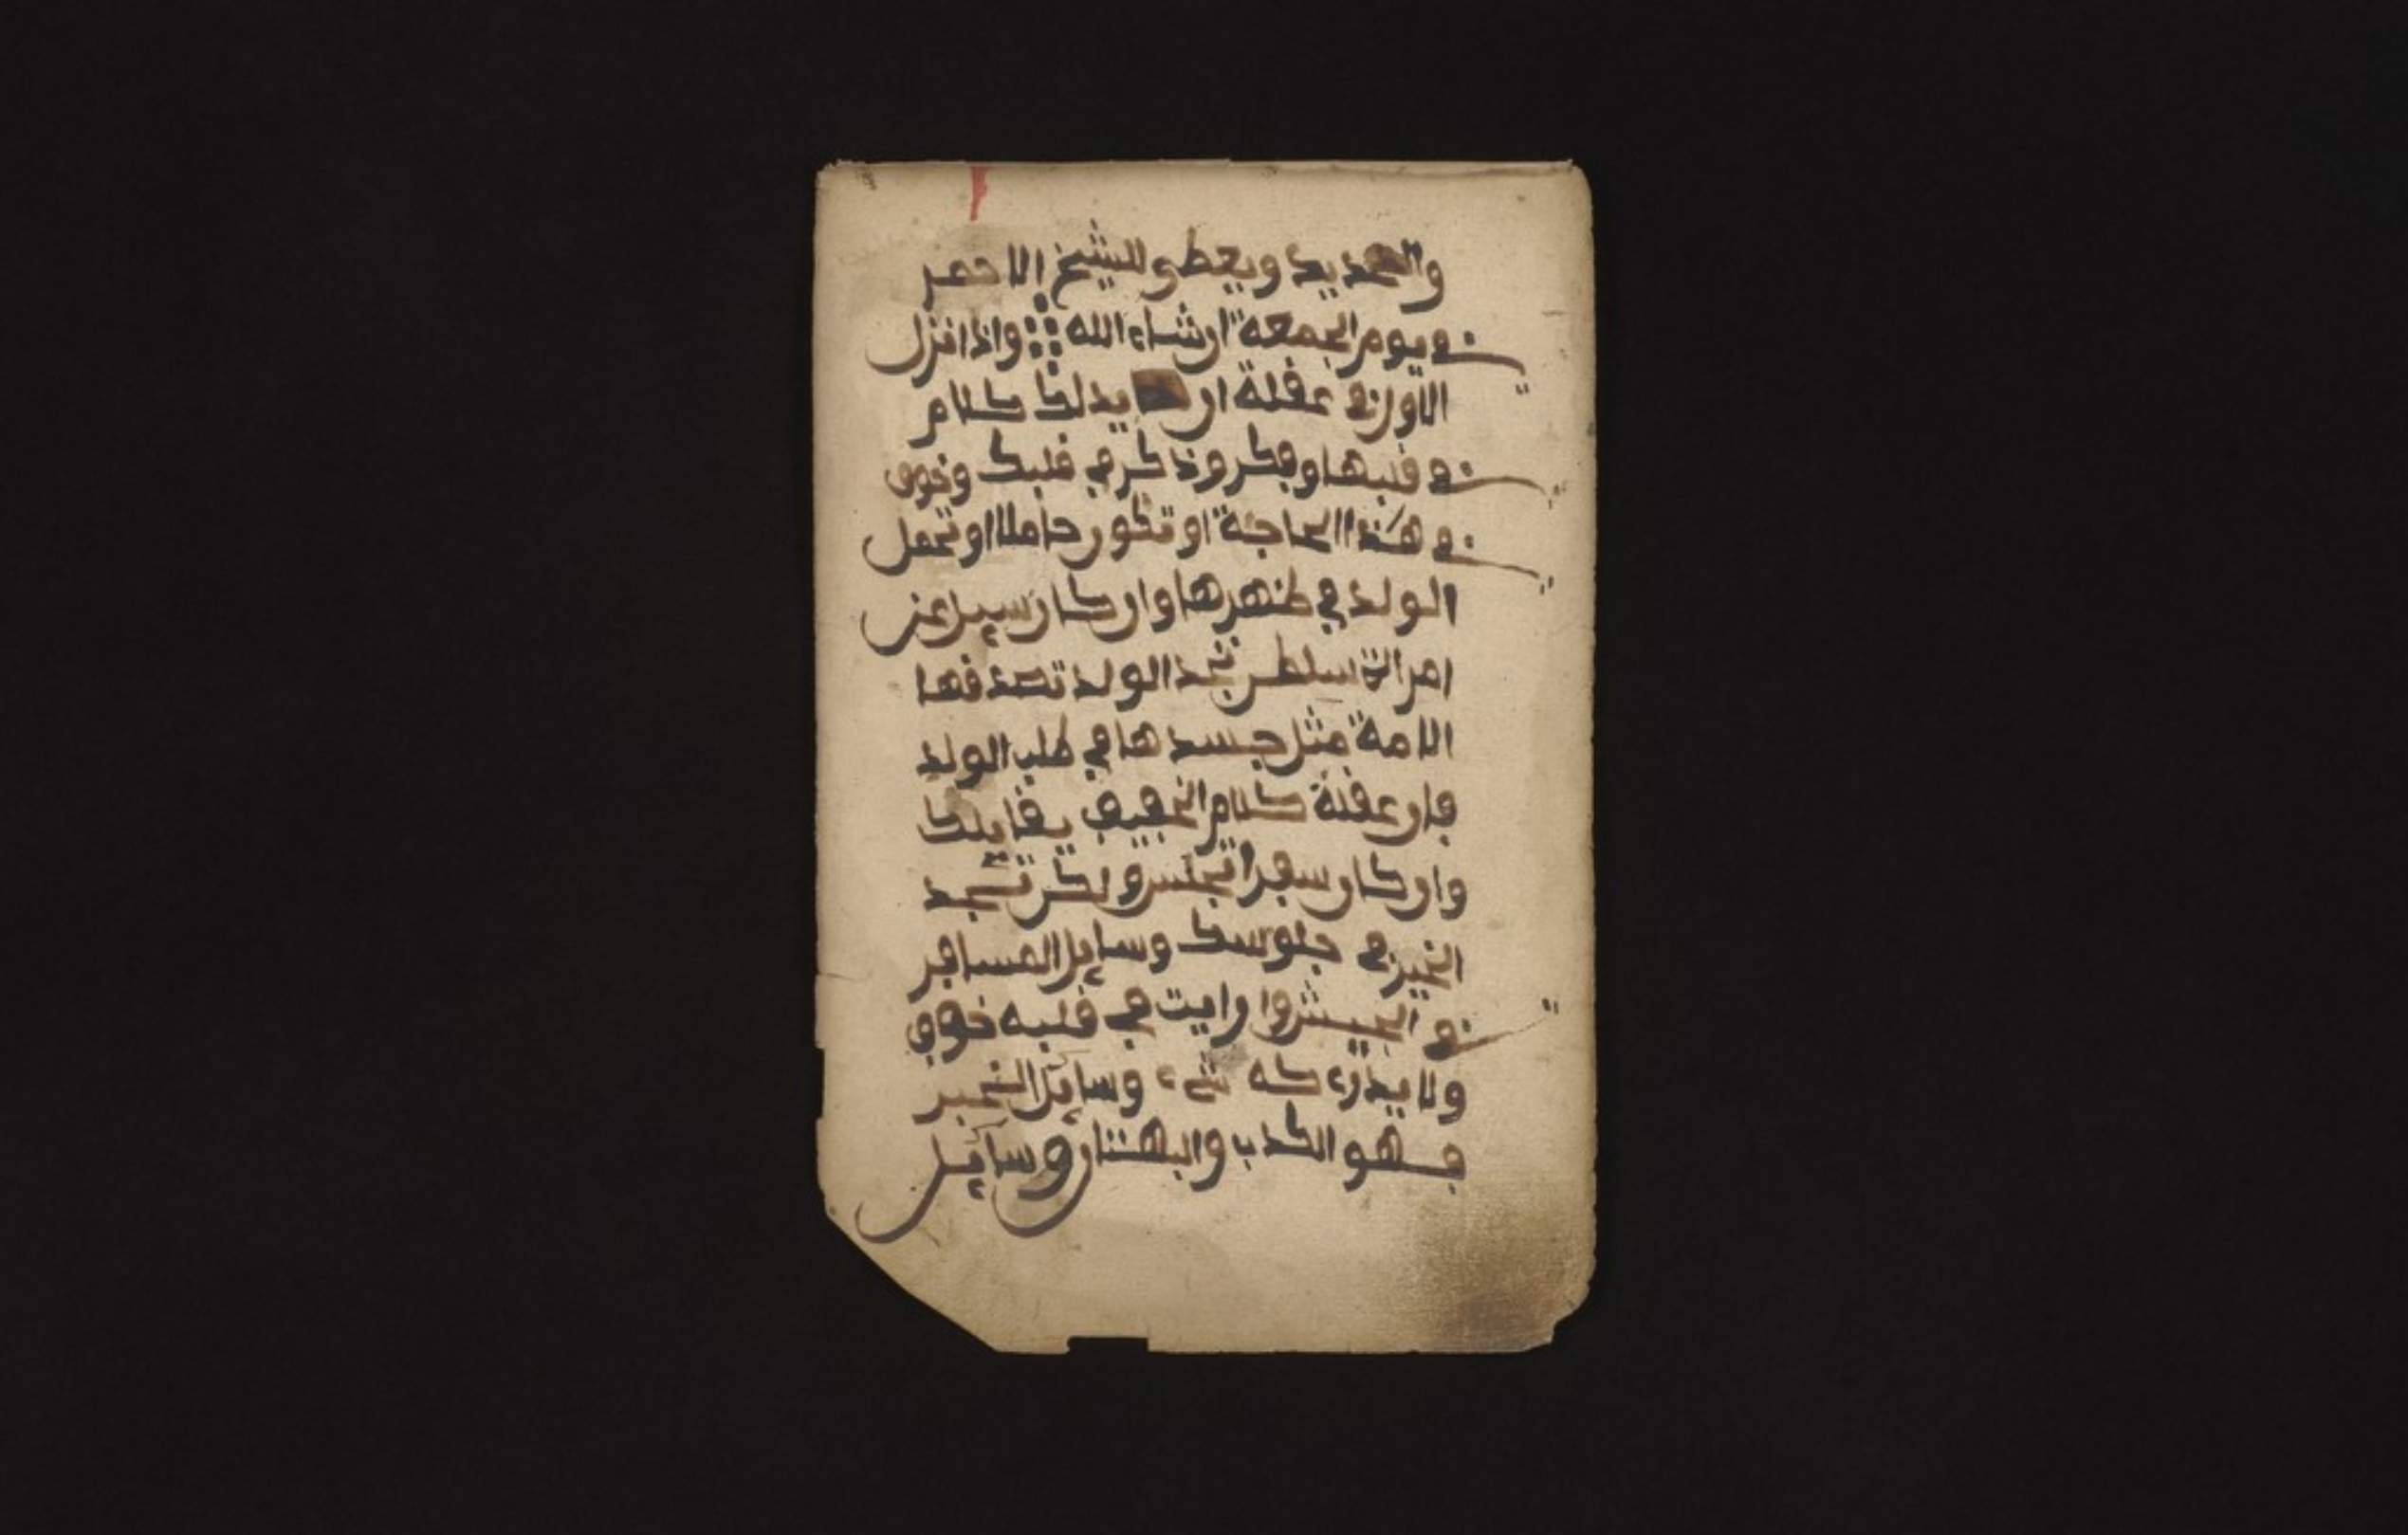 والحديد ويعطى للشيخ الاحمر
في يوم الجمعة ان شاء الله واذا انزل
الاول في عقلة ان يدلك كلام
في قلبها وفكر وذكر في قلبك وخوف
في هذا الحاجة او تكون حاملا او تحمل
الولد في ظهرها وان كان سيل عن
امراة سلطن تجد الولد تصدقها
الامة مثل جسدها في طلب الولد
فان عقلة كلام الخفيف يقابلك
وان كان سفرا تجلس ولكن تجد
الخير في جلوسك وسايل المسافر
في الجيش وا رايت في قلبه خوف
ولا يدركه شيء وسايل الخبر
فهو الكذب والبهتان وسايل